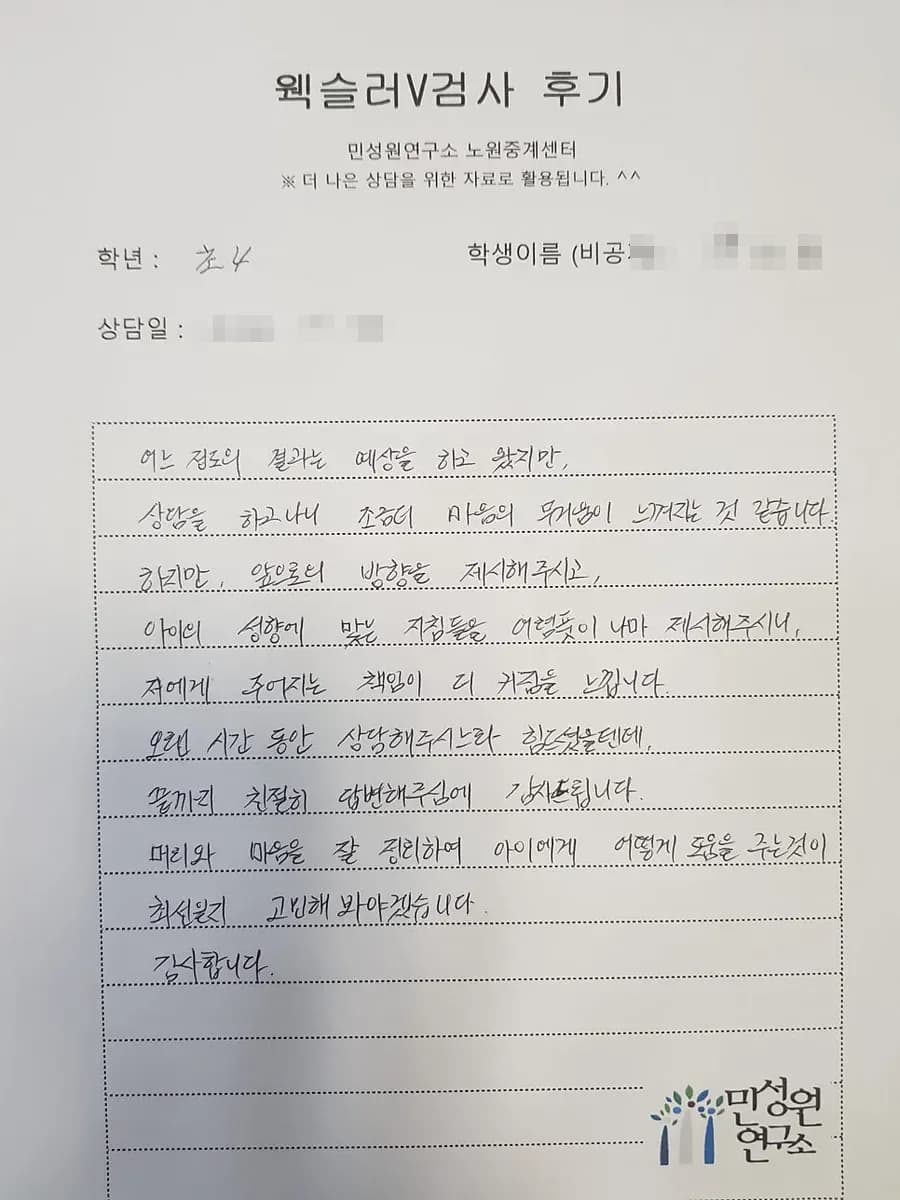 웩슬러V검사 후기
민성원연구소 노원중계센터
※ 더 나은 상담을 위한 자료로 활용됩니다. ^^
학년 : 초4
학생이름 (비공
상담일 :
어느 정도의 결과는 예상을 하고 왔지만,
상담을 하고나니 조금더 마음의 무거움이 느껴지는 것 같습니다.
하지만, 앞으로의 방향을 제시해주시고,
아이의 성향에 맞는 지침들을 어렴풋이나마 제시해주시니,
저에게 주어지는 책임이 더 커짐을 느낍니다.
오랜 시간 동안 상담해주시느라 힘드셨을텐데,
끝까지 친절히 답변해주심에 감사드립니다.
머리와 마음을 잘 정리하여 아이에게 어떻게 도움을 주는것이
최선일지 고민해 봐야겠습니다.
감사합니다.
민성원
연구소